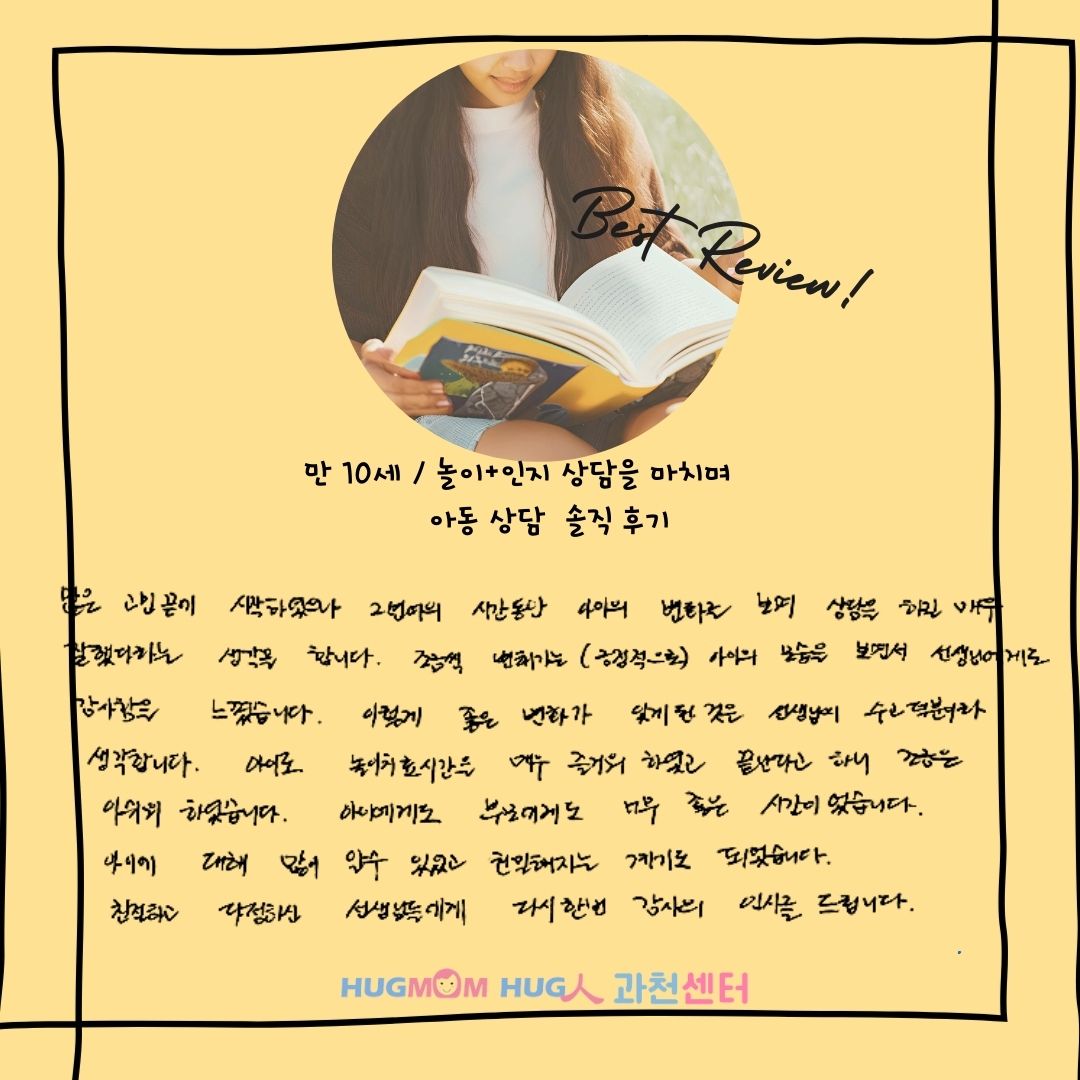 Best Review!
만 10세 / 놀이+인지 상담을 마치며
아동 상담 솔직 후기
많은 고민 끝에 시작하였으나 그 번여의 시간동안 아이의 변화를 보며 상담을 하긴 매우
잘했다하는 생각을 합니다. 조금씩 변해가는 (긍정적으로) 아이의 모습을 보면서 선생님에게도
감사함을 느꼈습니다. 이렇게 좋은 변화가 있게 된 것은 선생님의 수고 덕분이라
생각합니다. 아이도 놀이치료시간을 매우 즐거워 하였고 끝난다고 하니 조금은
아쉬워 하였습니다. 아이에게도 부모에게도 너무 좋은 시간이었습니다.
아이에 대해 많이 알수 있었고 친밀해지는 계기도 되었습니다.
친절하고 다정하신 선생님들에게 다시한번 감사의 인사를 드립니다.
HUGMOM HUG人 과천센터